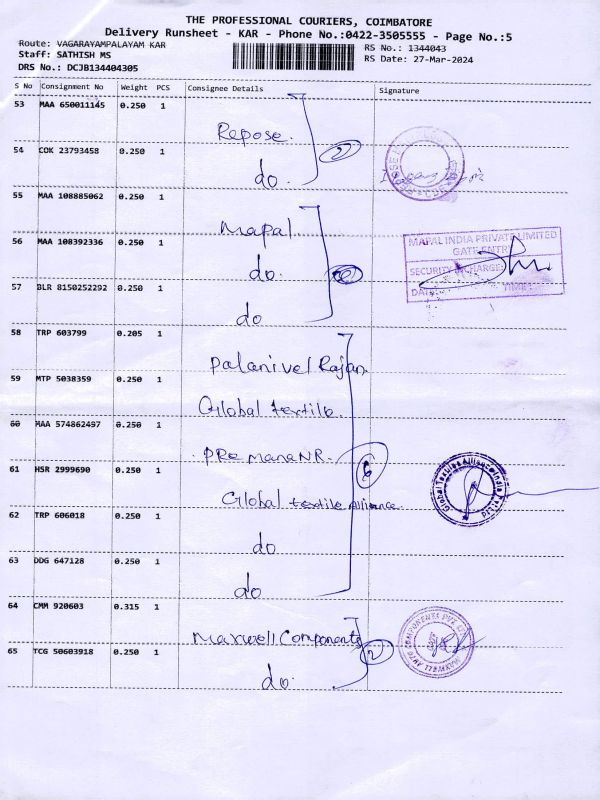 THE PROFESSIONAL COURIERS, COIMBATORE
Delivery Runsheet - KAR - Phone No.:0422-3505555 - Page No.:5
Route: VAGARAYAMPALAYAM KAR RS No.: 1344043
Staff: SATHISH MS RS Date: 27-Mar-2024
DRS No.: DCJB134404305
S No Consignment No Weight PCS Consignee Details Signature
53 MAA 650011145 0.250 1 Repose.
54 COK 23793458 0.250 1 do. 2
55 MAA 108885062 0.250 1 Mapal.
56 MAA 108392336 0.250 1 do.
MAPAL INDIA PRIVATE LIMITED
GATE ENTRY
SECURITY INCHARGE
DATE TIME
57 BLR 8150252292 0.250 1 do
58 TRP 603799 0.205 1 Palanivel Rajan.
59 MTP 5038359 0.250 1 Global textile.
60 MAA 574862497 0.250 1 PRemanaNR. 6
61 HSR 2999690 0.250 1 Global textile Alliance.
Global Textile Alliance India Pvt Ltd
62 TRP 606018 0.250 1 do
63 DDG 647128 0.250 1 do
64 CMM 920603 0.315 1 Maxwell Components
MAXWELL AUTO COMPONENTS PVT LTD
65 TCG 50603918 0.250 1 do. 2